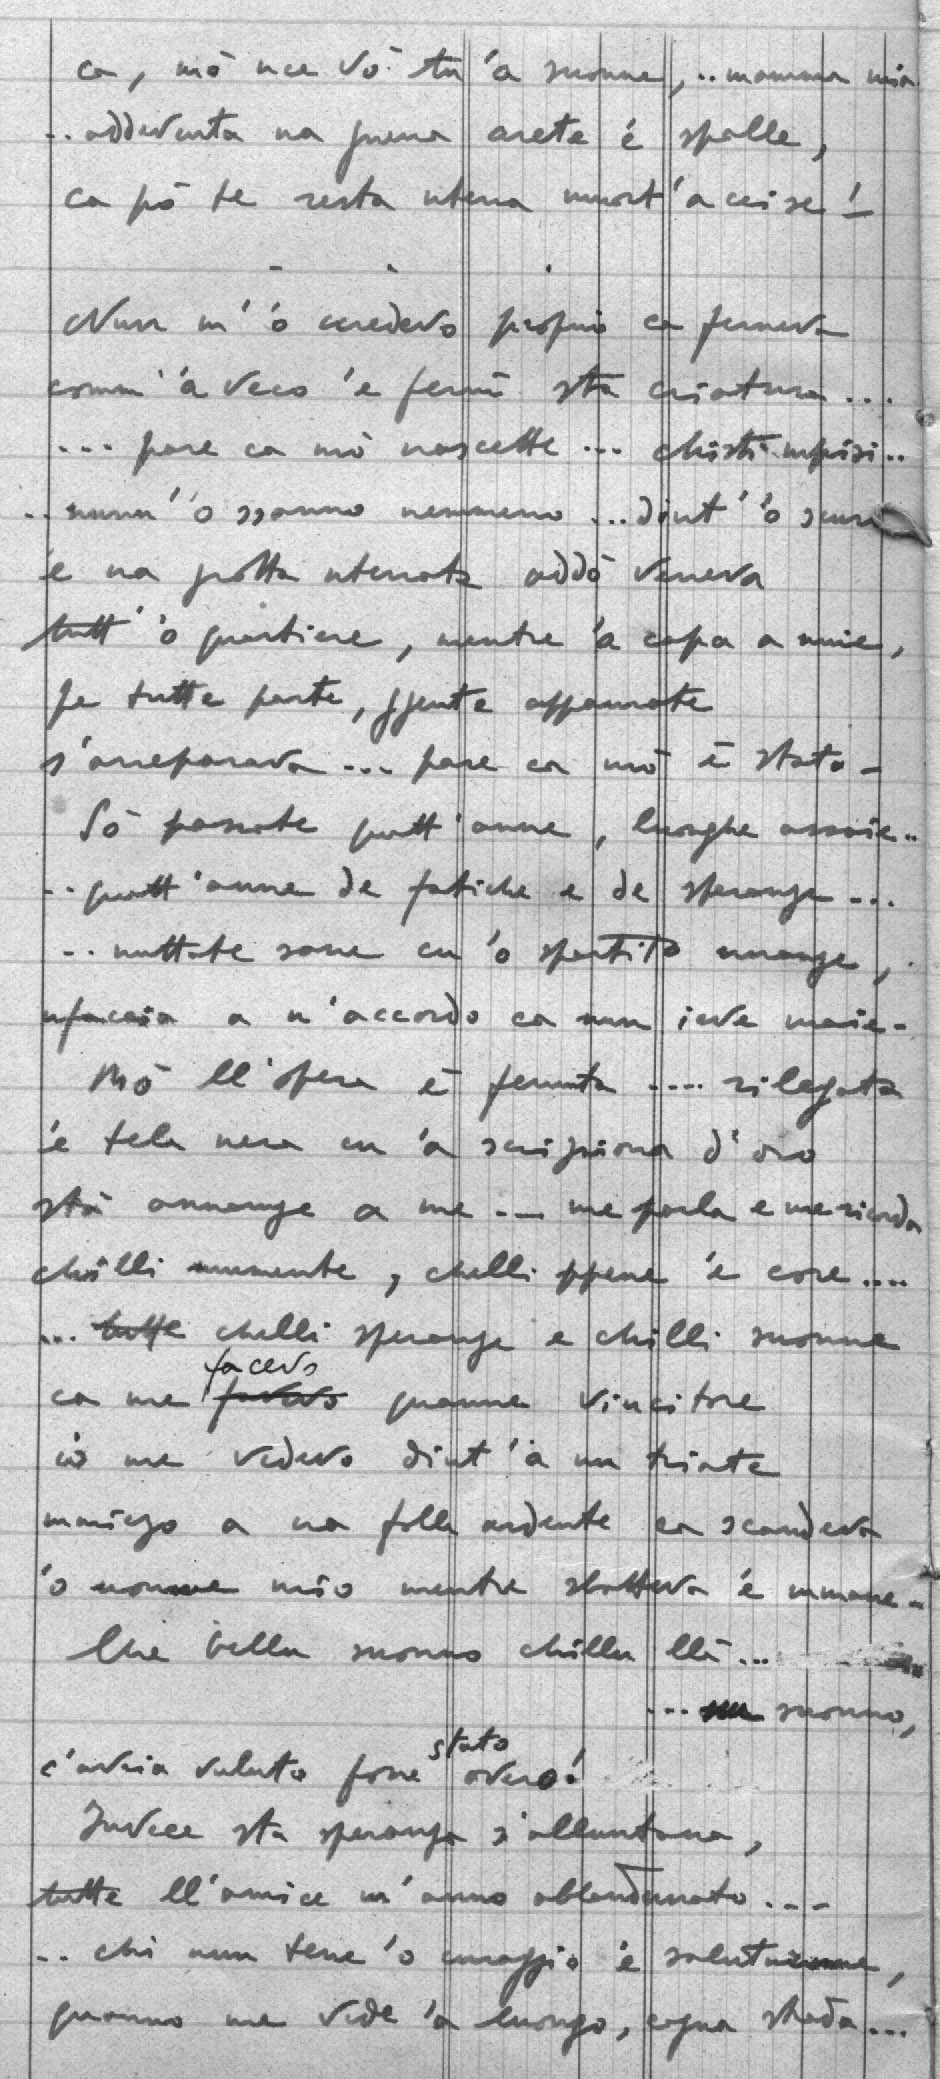 ca, mò nce vò tu 'a suonne,.. mamma mia
.. addeventa na guerra arete é spalle,
ca pò te resta nterra muort'accise! –
Nun m' 'o credevo proprio ca ferneva
comm' 'a veco 'e fernì sta criatura...
... pare ca mò nascette... chisti mpisi..
.. nunn' 'o ssanno nemmeno... dint' 'o scuro
'e na grotta nterrata addò veneva
tutt' 'o quartiere, mentre 'a copa a nuie,
pe tutte parte, ggente appaurate
s'arreparava... pare ca mò è stato –
Sò passate quatt'anne, luonghe assaie..
.. quatt'anne de fatiche e de speranze...
.. nuttate sane cu 'o spartito nnanze,
nfaccia a n'accordo ca nun ieve maie –
Mò ll'opera è fernuta.... rilegata
'e tela nera cu 'a scrizziona d'oro
stà annanze a me... me parla e me ricorda
chilli mumente, chelli ppene 'e core....
... tutte chelli speranze e chilli suonne
facevo
ca me facevo quanne vincitore
io me vedevo dint' 'a nu triate
mmiezo a na folla ardente ca scandeva
'o nomme mio mentre sbatteva 'e mmane..
Che bellu suonno chillu llà...
... nu suonno,
stato
c'avria vuluto fosse overo!
Invece sta speranza s'alluntana,
tutte ll'amice m'anno abbandunato....
.. chi nun tene 'o curaggio 'e salutarme,
quanno me vede 'a luongo, cagna strada...